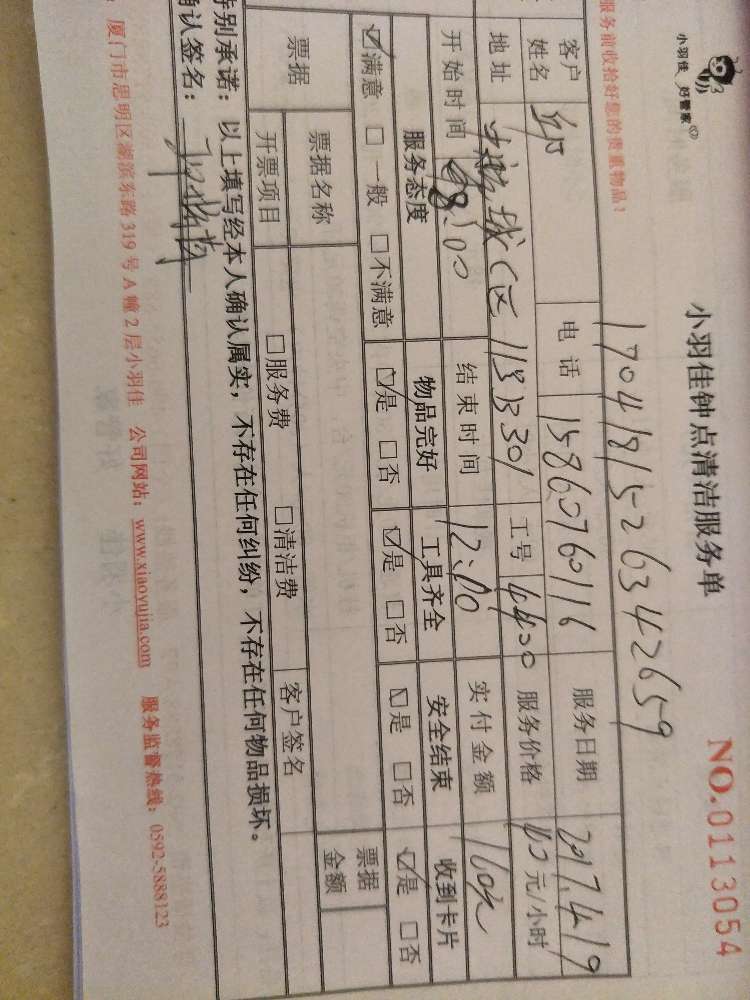 小羽佳 好管家
小羽佳钟点清洁服务单
NO.0113054
服务前收拾好您的贵重物品!
1704181526342659
客户姓名 电话 15860760116 服务日期 2017.4.19
地址 城C区113 3301 工号 4430 服务价格 40元/小时
开始时间 08:00 结束时间 12:00 实付金额 160元
服务态度 物品完好 工具齐全 安全结束 收到卡片
☑满意 □一般 □不满意 ☑是 □否 ☑是 □否 ☑是 □否 ☑是 □否
票据 票据名称 票据金额
开票项目 □服务费 □清洁费 客户签名
特别承诺:以上填写经本人确认属实,不存在任何纠纷,不存在任何物品损坏。
确认签名:
厦门市思明区湖滨东路319号A幢2层小羽佳 公司网站:www.xiaoyujia.com 服务监督热线:0592-5888123